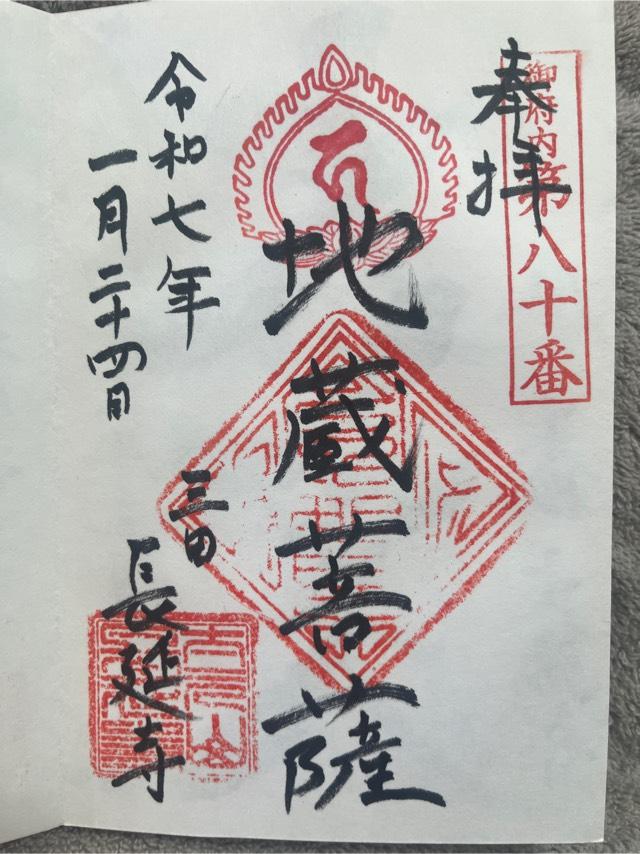 奉拝
御府内第八十番
地蔵菩薩
令和七年
一月二十四日
三田
長延寺